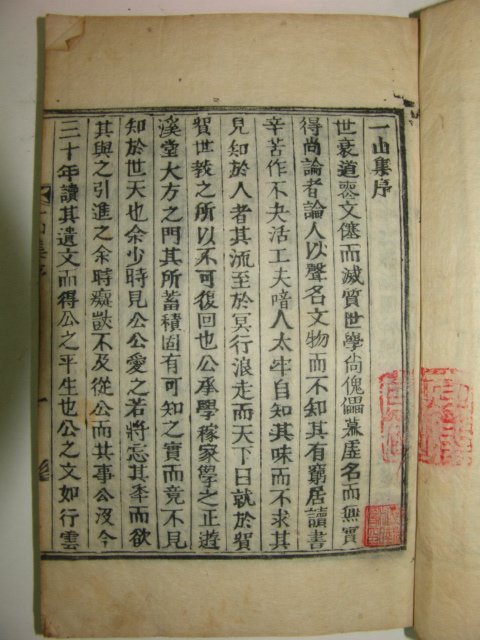 一山集序
世衰道喪文僿而滅質世學尙傀儡慕虛名而無實
得尙論者論人以聲名文物而不知其有窮居讀書
辛苦作不夬活工夫啽人太牢自知其味而不求其
見知於人者其流至於冥行浪走而天下日就於貿
貿世敎之所以不可復回也公承學稼家學之正遊
溪堂大方之門其所蓄積固有可知之實而竟不見
知於世天也余少時見公公愛之若將忘其年而欲
其與之引進之余時癡獃不及從公而共事公沒今
三十年讀其遺文而得公之平生也公之文如行雲
一山集序
一